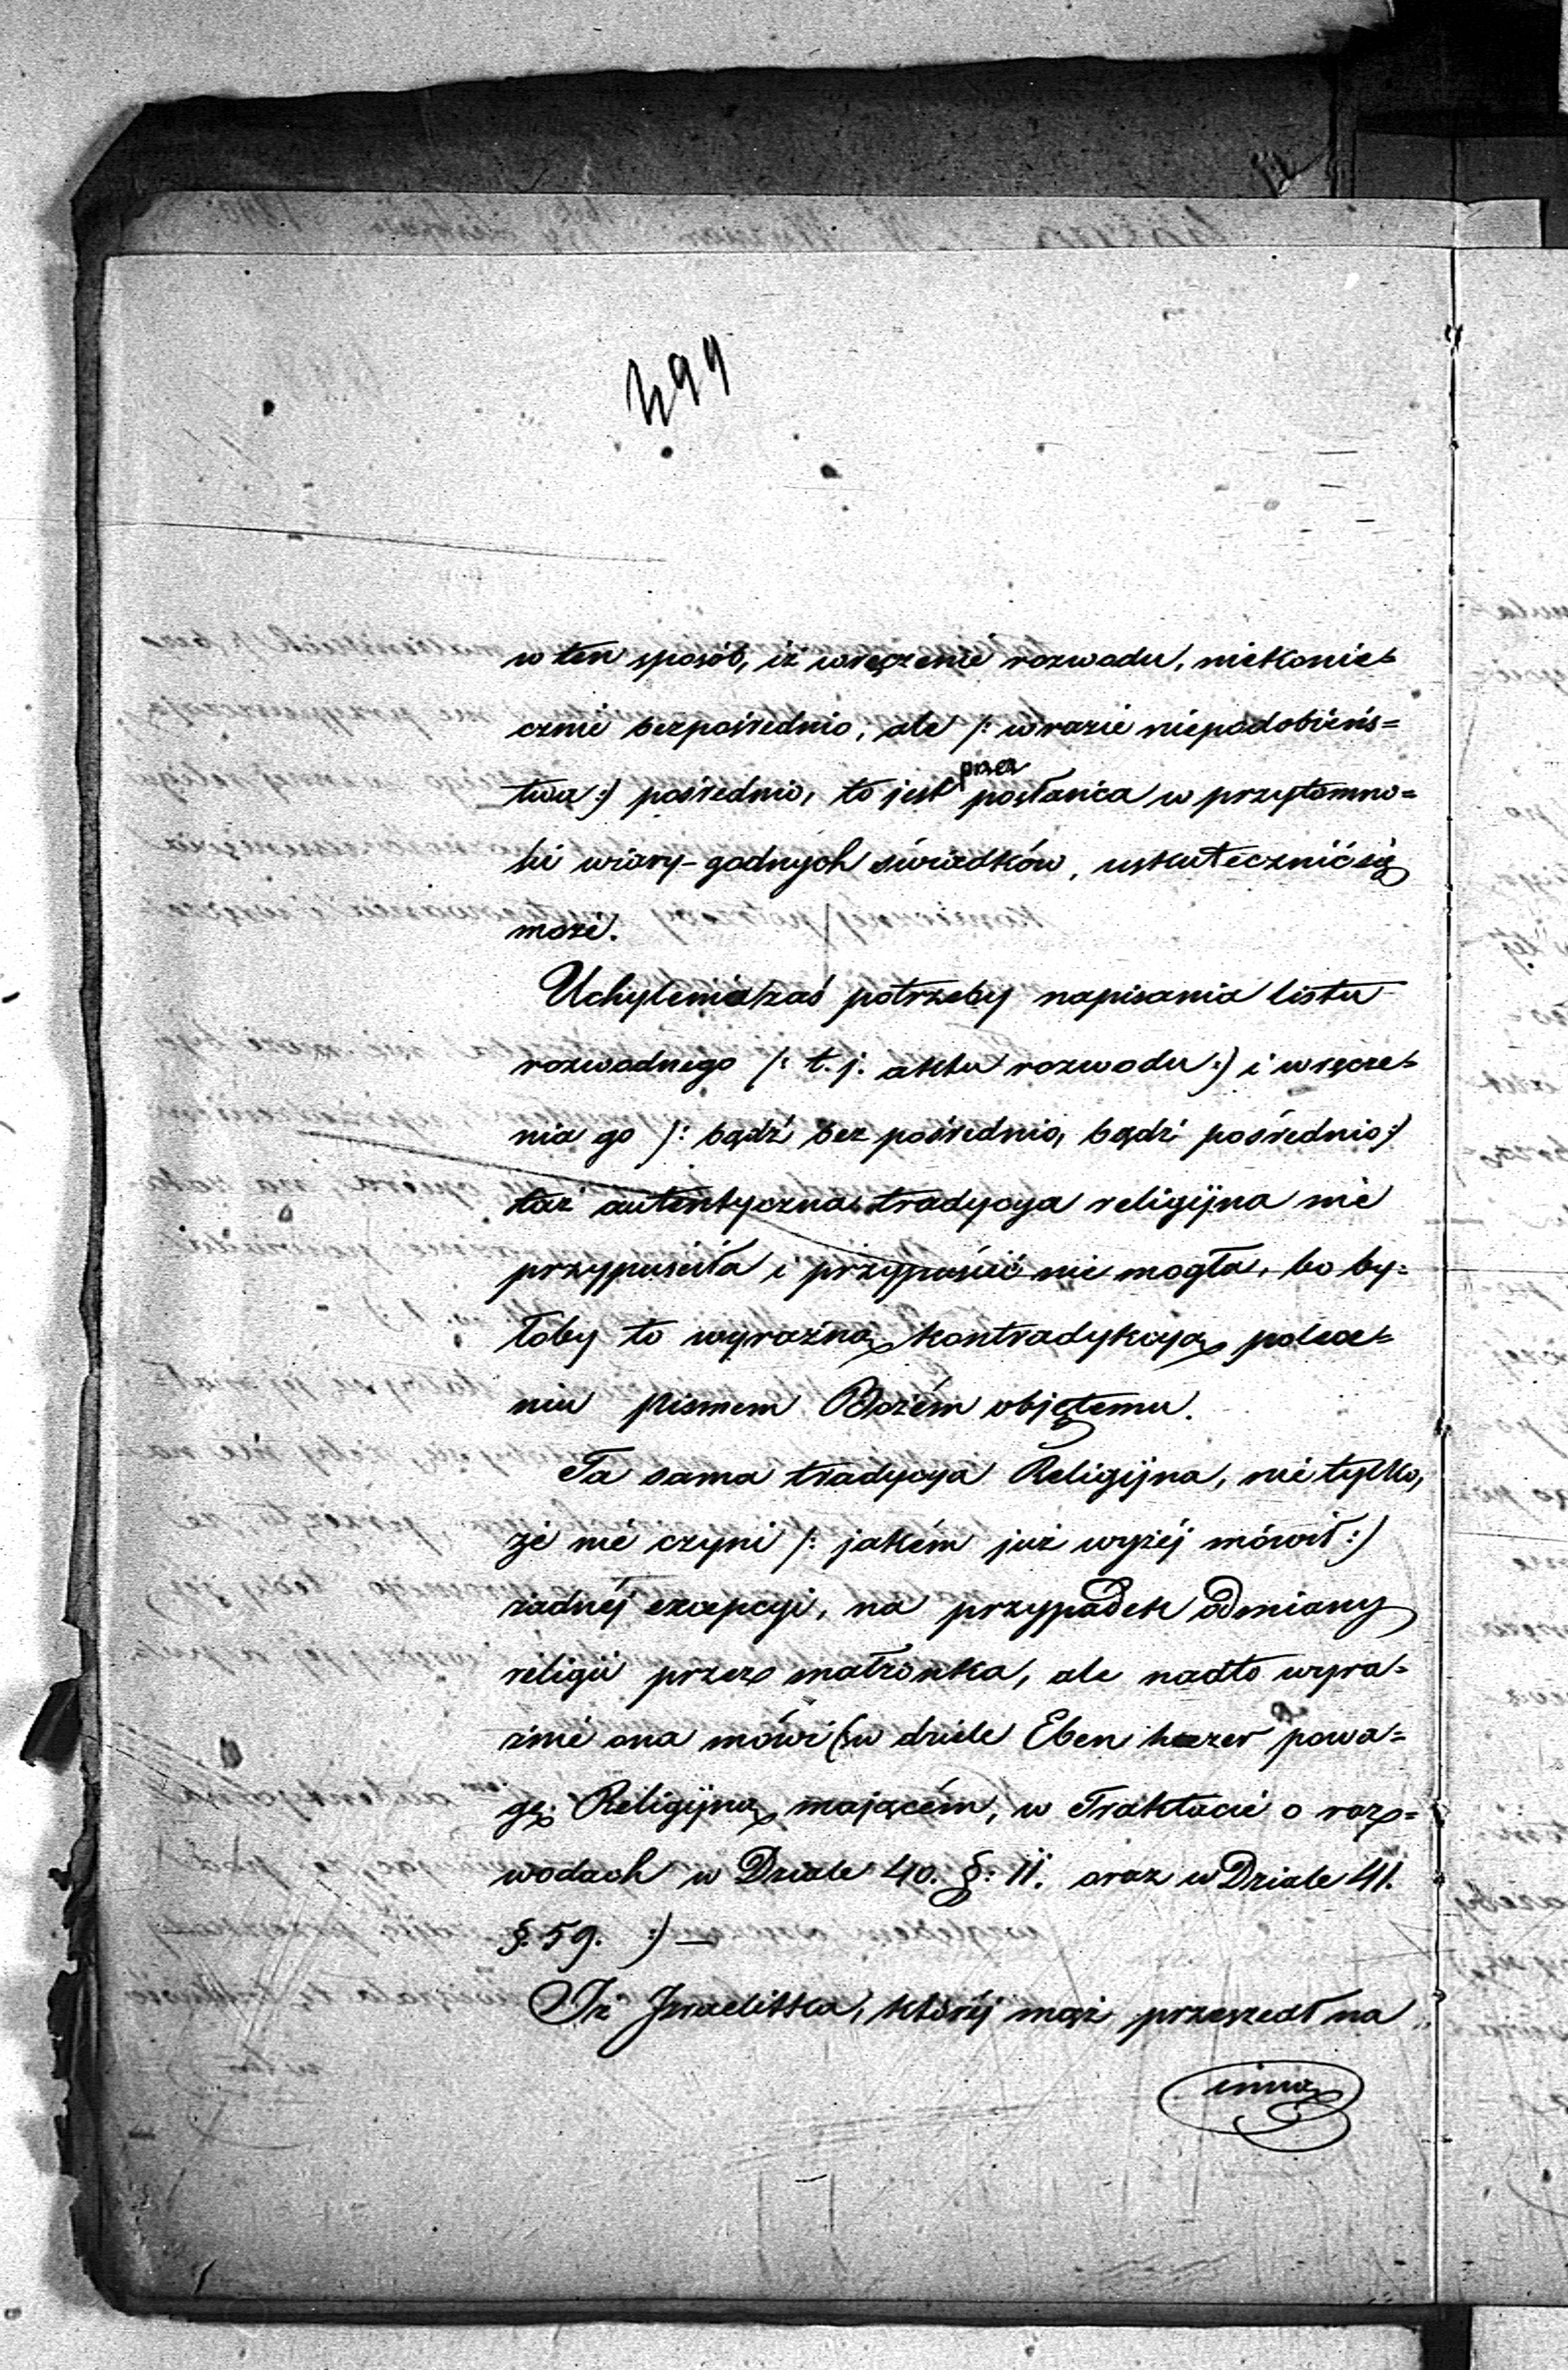 499
w ten sposób, iż wręczenie rozwodu, niekonie=
cznie bezpośrednio, ale /: w razie niepodobieńs=
twa :/ pośrednio, to jest przez posłańca w przytomno=
ści wiary-godnych świadków, uskutecznić się
może.
Uchylenia zaś potrzeby napisania listu
rozwodnego /: t. j. aktu rozwodu :/ i wręcze=
nia go /: bądź bez pośrednio, bądź pośrednio :/
taż autentyczna tradycya religijna nie
przypuściła i przypuścić nie mogła, bo by=
łoby to wyraźną kontradykcyą polece=
niu pismem Bożém objętemu.
Ta sama tradycya Religijna, nie tylko,
że nie czyni /: jakém już wyżéj mówił :/
żadnéj excepcyi, na przypadek odmiany
religii przez małżonka, ale nadto wyra=
źnie ona mówi (w dziele Eben haezer powa=
gę Religijną mającém, w Traktacie o roz=
wodach w Dziale 40. §: 11. oraz w Dziale 41.
§. 59. :/ —
Iż Izraelitka, któréj mąż przeszedł na
inną